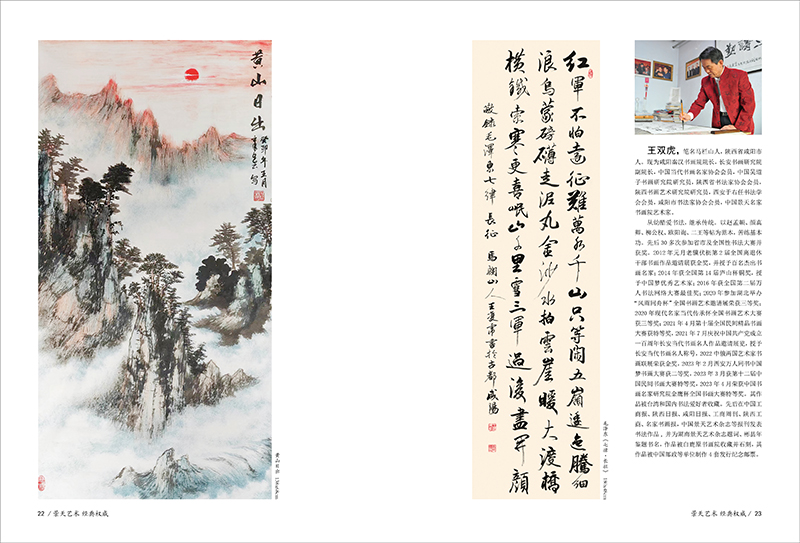 黄山日出
癸卯年五月
黄山日出
22 / 景天艺术 经典权威
红軍不怕遠征難萬水千山只等閑五嶺逶迤騰細
浪烏蒙磅礴走泥丸金沙水拍雲崖暖大渡橋
橫鐵索寒更喜岷山千里雪三軍過後盡開顏
敬錄毛澤東七律長征 馬闌山人王雙虎書於古都咸陽
毛泽东《七律·长征》
王双虎，笔名马栏山人，陕西省咸阳市
人。现为咸阳秦汉书画院院长，长安书画研究院
副院长，中国当代书画名家协会会员，中国吴道
子书画研究院研究员，陕西省书法家协会会员，
陕西书画艺术研究院研究员，西安于右任书法学
会会员，咸阳市书法家协会会员，中国景天名家
书画院艺术家。
从幼酷爱书法，继承传统，以赵孟頫、颜真
卿、柳公权、欧阳询、二王等帖为蓝本，苦练基本
功。先后30多次参加省市及全国性书法大赛并
获奖。2012年元月老骥伏枥第2届全国离退休
干部书画作品邀请展获金奖，并授予百名杰出书
画名家；2014年获全国第14届庐山杯铜奖，授
予中国梦优秀艺术家；2016年获全国第二届万
人书法网络大赛最佳奖；2020年参加湖北举办
“风雨同舟杯”全国书画艺术邀请展荣获三等奖；
2020年现代名家当代传承杯全国书画艺术大赛
获三等奖；2021年4月第十届全国民间精品书画
大赛获特等奖，2021年7月庆祝中国共产党成立
一百周年长安当代书画名人作品邀请展览，授予
长安当代书画名人称号。2022中俄两国艺术家书
画联展荣获金奖。2023年2月西安万人同书中国
梦书画大赛获二等奖，2023年3月获第十二届中
国民间书画大赛特等奖，2023年4月荣获中国书
画名家研究院金鹰杯全国书画大赛特等奖。其作
品被台湾和国内书法爱好者收藏。先后在中国工
商报、陕西日报、咸阳日报、工商周刊、陕西工
商、名家书画报、中国景天艺术杂志等报刊发表
书法作品，并为湖商景天艺术杂志题词、彬县年
鉴题书名。作品被白鹿原书画院收藏并石刻，其
作品被中国邮政等单位制作4套发行纪念邮票。
景天艺术 经典权威 / 23